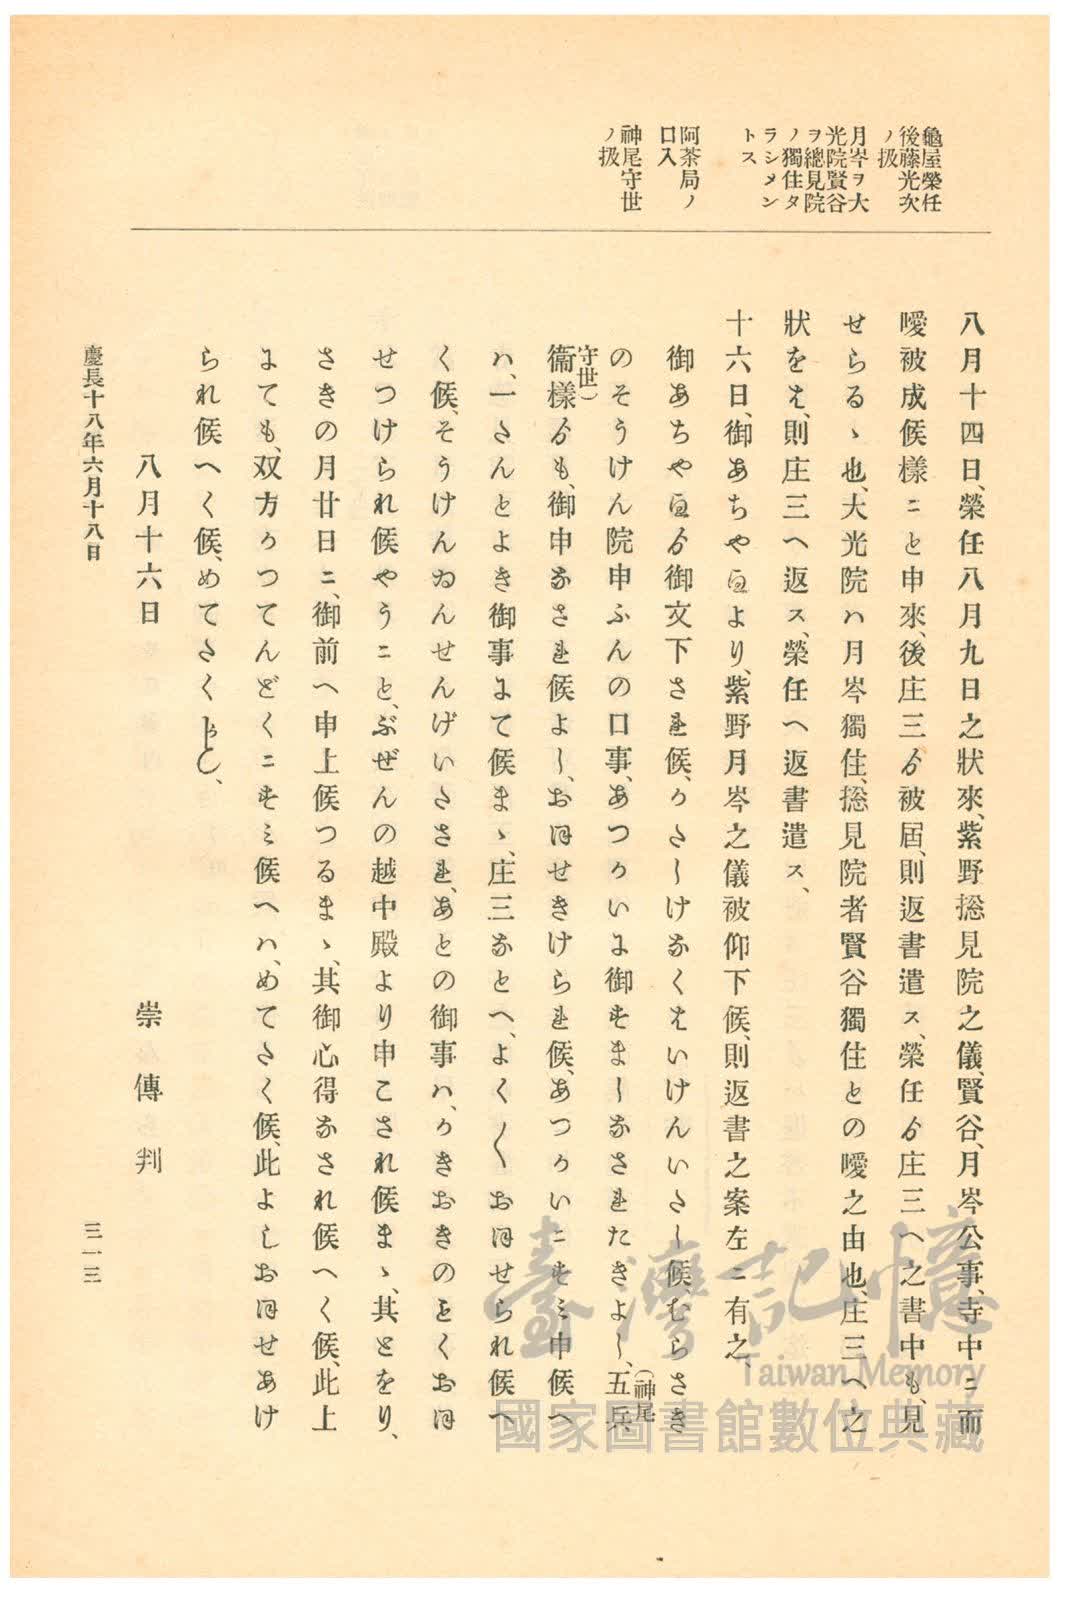 龜屋榮任
後藤光次
ノ扱
月岑ヲ大
光院賢谷
ヲ總見院
ノ獨住タ
ラシメン
トス
阿茶局ノ
口入
神尾守世
ノ扱
八月十四日、榮任八月九日之狀來、紫野捴見院之儀、賢谷、月岑公事、寺中ニ而
噯被成候樣ニと申來、後庄三ゟ被屆、則返書遣ス、榮任ゟ庄三へ之書中も、見
せらるゝ也、大光院ハ月岑獨住、捴見院者賢谷獨住との噯之由也、庄三へ之
狀をは、則庄三へ返ス、榮任へ返書遣ス、
十六日、御あちや〻より、紫野月岑之儀被仰下候、則返書之案左ニ有之、
御あちや〻ゟ御文下され候、かたしけなくはいけんいたし候、むらさき
のそうけん院申ふんの口事、あつかいに御すましなされたきよし、五兵
(神尾
衞樣ゟも、御申なされ候よし、おほせきけられ候、あつかいニすミ申候へ
守世)
ハ、一たんとよき御事にて候まゝ、庄三なとへ、よく〱おほせられ候へ
く候、そうけんゐんせんげいたされ、あとの御事ハ、かきおきのことくおほ
せつけられ候やうニと、ぶぜんの越中殿より申こされ候まゝ、其とをり、
さきの月廿日ニ、御前へ申上候つるまゝ、其御心得なされ候へく候、此上
にても、双方かつてんどくニすミ候へハ、めてたく候、此よしおほせあけ
られ候へく候、めてたくかしく、
八月十六日
崇傳判
慶長十八年六月十八日
三一三
臺灣記憶
Taiwan Memory
國家圖書館數位典藏